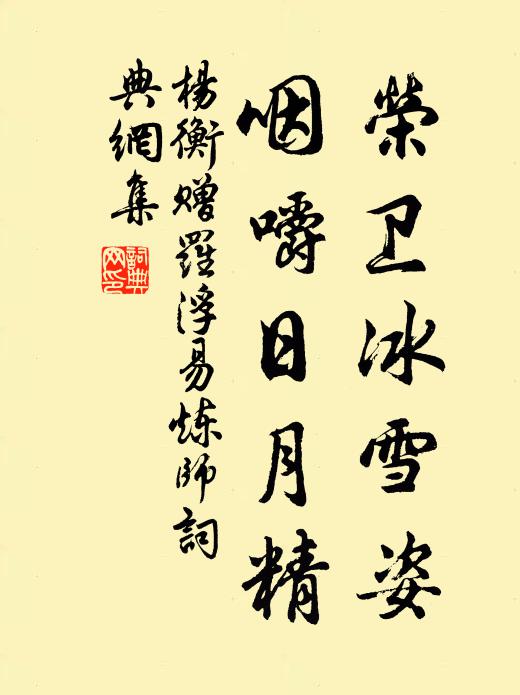 榮卫冰雪姿
咽嚼日月精
楊衡贈羅浮易炼師詞
典網集
詞典网印